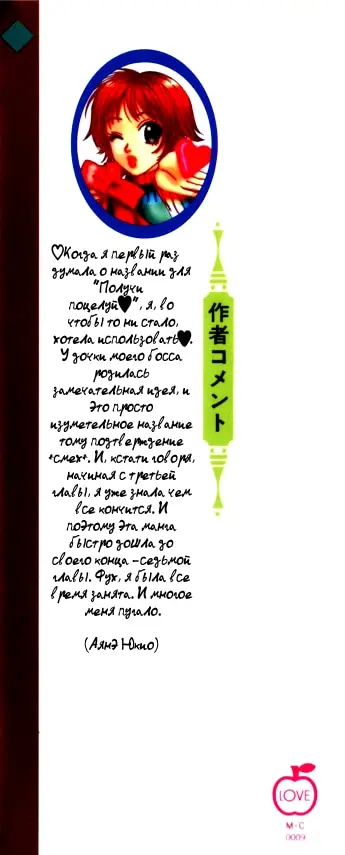 ♡Когда я первый раз
думала о названии для
"Получи
поцелуй♥", я, во
чтобы то ни стало,
хотела использовать♥.
У дочки моего босса
родилась
замечательная идея, и
это просто
изуметельное название
тому подтверждение
*смех*. И, кстати говоря,
начиная с третьей
главы, я уже знала чем
все кончится. И
поэтому эта манга
быстро дошла до
своего конца -седьмой
главы. Фух, я была все
время занята. И многое
меня пугало.
(Аянэ Юкио)
作者コメント
LOVE
M-C
0009